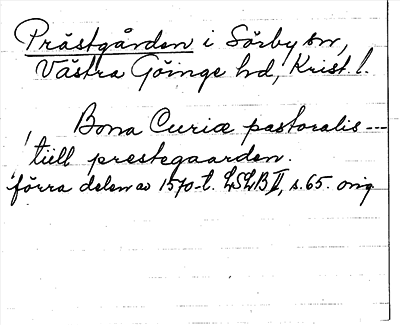 Prästgården i Sörby sn,
Västra Göinge hd, Krist. l.
Bona Curiæ pastoralis ---
tiill prestegaarden.
förra delen av 1570-t. LSLB II, s. 65. orig